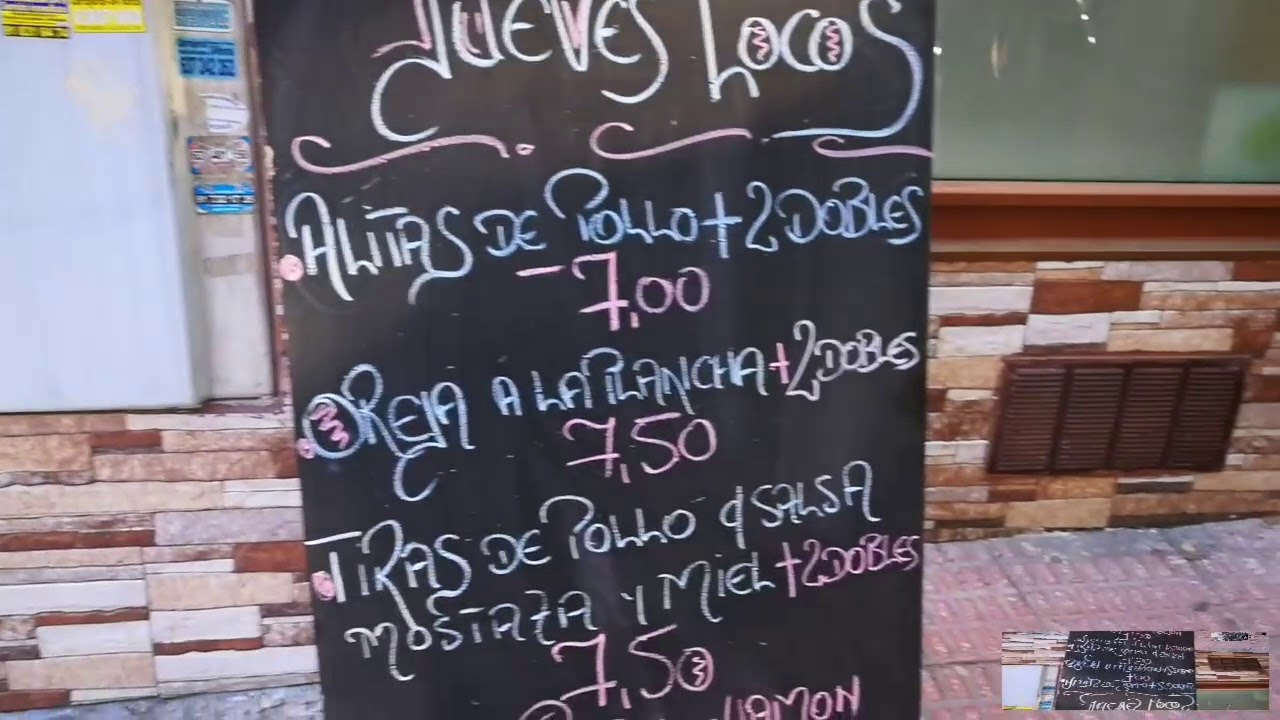 JUEVES LOCOS
ALITAS DE POLLO + 2 DOBLES
- 7,00
OREJA A LA PLANCHA + 2 DOBLES
7,50
TIRAS DE POLLO Y SALSA
MOSTAZA Y MIEL + 2 DOBLES
7,50
JAMON